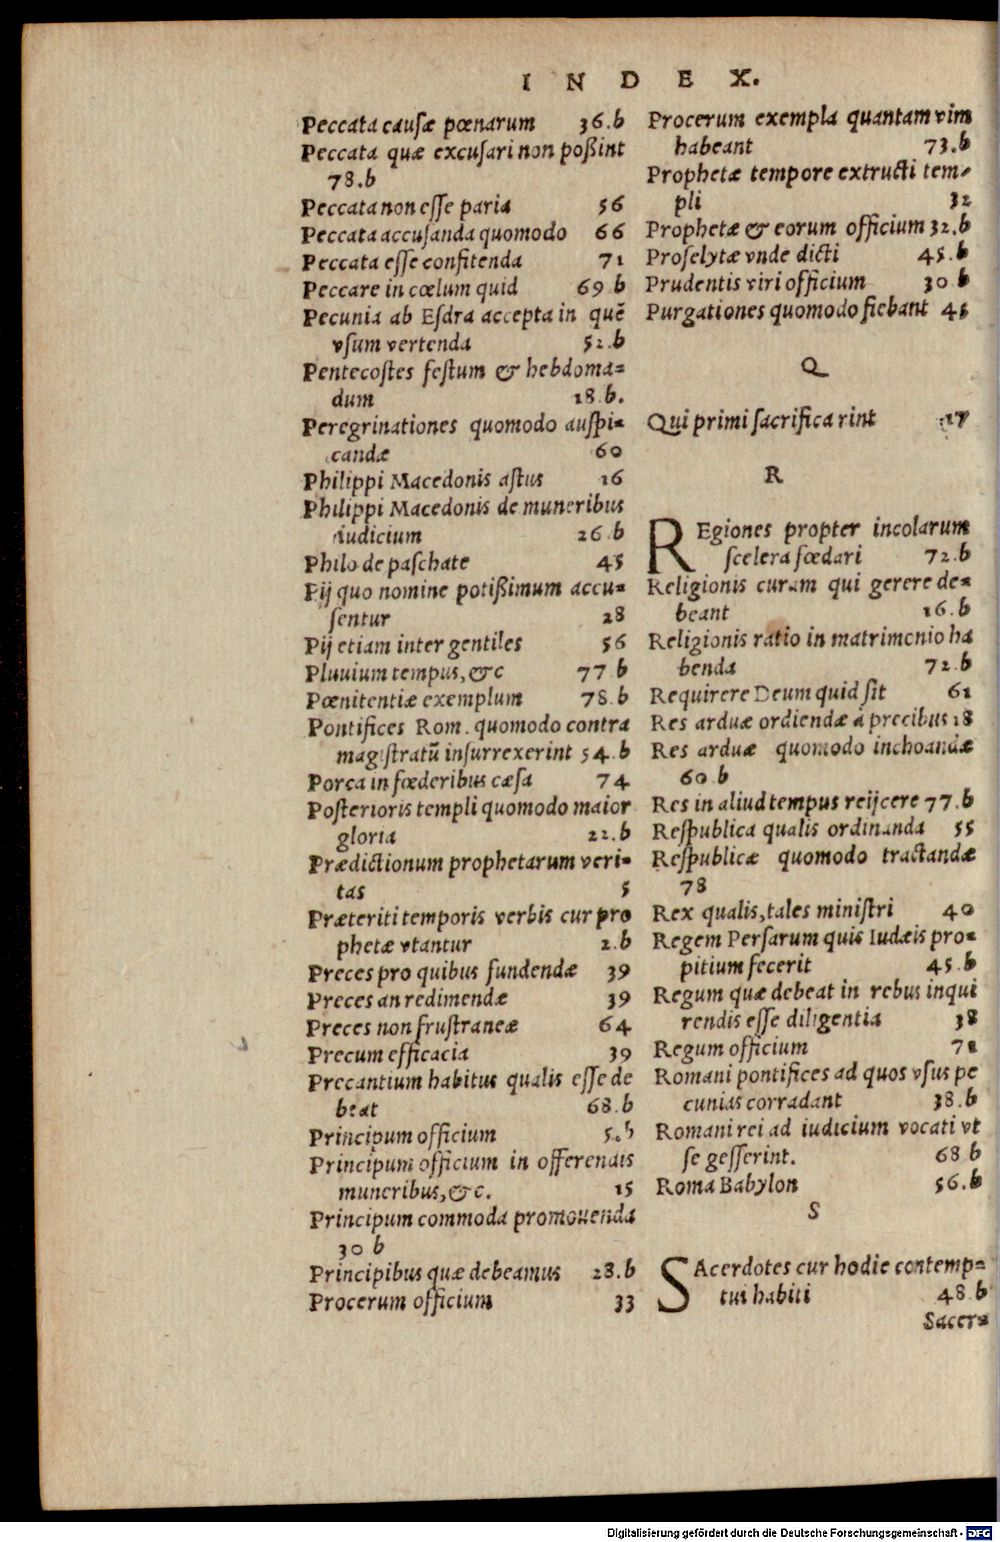 INDEX.
Peccata causæ pœnarum 36.b
Peccata quæ excusari non poßint
78.b
Peccata non esse paria 56
Peccata accusanda quomodo 66
Peccata esse confitenda 71
Peccare in cœlum quid 69 b
Pecunia ab Esdra accepta in quē
vsum vertenda 52.b
Pentecostes festum & hebdoma=
dum 18.b.
Peregrinationes quomodo auspi=
candæ 60
Philippi Macedonis astus 16
Philippi Macedonis de muneribus
iudicium 26.b
Philo de paschate 45
Pij quo nomine potißimum accu=
sentur 28
Pij etiam inter gentiles 56
Pluuium tempus, &c 77 b
Pœnitentiæ exemplum 78.b
Pontifices Rom. quomodo contra
magistratū insurrexerint 54.b
Porca in fœderibus cæsa 74
Posterioris templi quomodo maior
gloria 22.b
Prædictionum prophetarum veri=
tas 5
Præteriti temporis verbis cur pro
phetæ vtantur 2.b
Preces pro quibus fundendæ 39
Preces an redimendæ 39
Preces non frustraneæ 64
Precum efficacia 39
Precantium habitus qualis esse de
beat 68.b
Principum officium 5.b
Principum officium in offerendis
muneribus, &c. 15
Principum commoda promouenda
30 b
Principibus quæ debeamus 28.b
Procerum officium 33
Procerum exempla quantam vim
habeant 73.b
Prophetæ tempore extructi tem=
pli 32
Prophetæ & eorum officium 32.b
Proselytæ vnde dicti 45.b
Prudentis viri officium 30 b
Purgationes quomodo fiebant 45
Q
Qui primi sacrificarint 17
R
REgiones propter incolarum
scelera fœdari 72.b
Religionis curam qui gerere de=
beant 16.b
Religionis ratio in matrimonio ha
benda 72.b
Requirere Deum quid sit 61
Res arduæ ordiendæ à precibus 18
Res arduæ quomodo inchoandæ
60 b
Res in aliud tempus reijcere 77.b
Respublica qualis ordinanda 55
Respublicæ quomodo tractandæ
78
Rex qualis, tales ministri 40
Regem Persarum quis Iudæis pro=
pitium fecerit 45.b
Regum quæ debeat in rebus inqui
rendis esse diligentia 38
Regum officium 71
Romani pontifices ad quos vsus pe
cunias corradant 38.b
Romani rei ad iudicium vocati vt
se gesserint. 68 b
Roma Babylon 56.b
S
SAcerdotes cur hodie contemp=
tui habiti 48.b
Sacer=
Digitalisierung gefördert durch die Deutsche Forschungsgemeinschaft - DFG